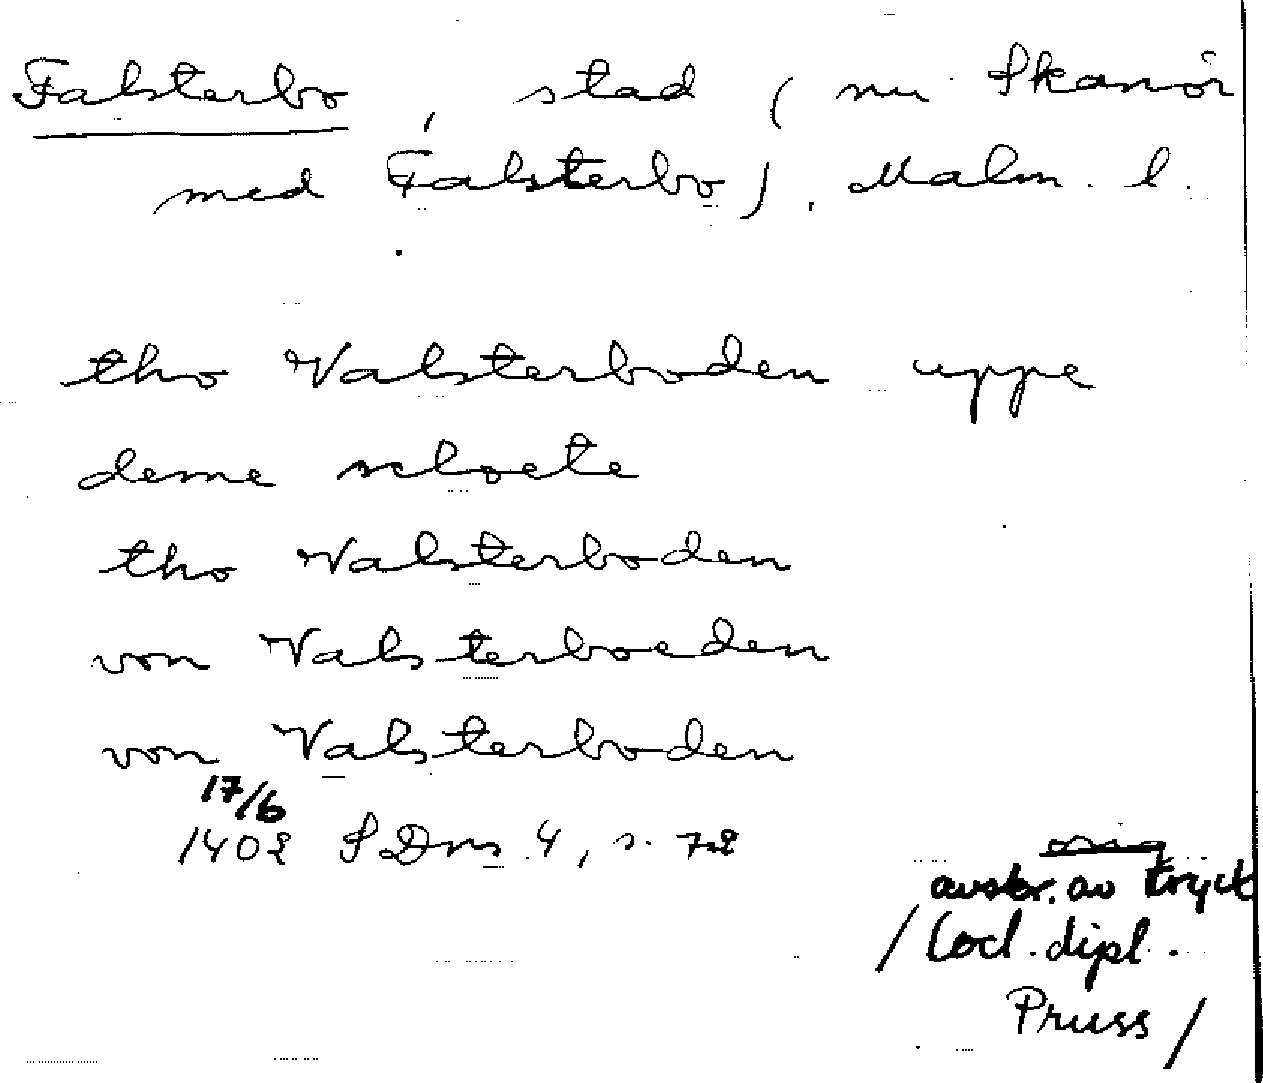 Falsterbo, stad (nu Skanör
med Falsterbo). Malm. l.
tho Valsterboden uppe
deme sloete
tho Valsterboden
von Valsterboeden
von Valsterboden
17/6
1402 SDns 4, s. 72
orig
avskr. av tryck
/Cod. dipl.
Pruss/